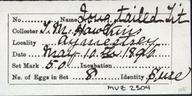 Name Long tailed Tit
Collector J. M. Hawkins
Locality Aymestrey
Date May 10th 1896
Set Mark 5.0. Incubation
No. of Eggs in Set 8 Identity Sure
MVZ 2504